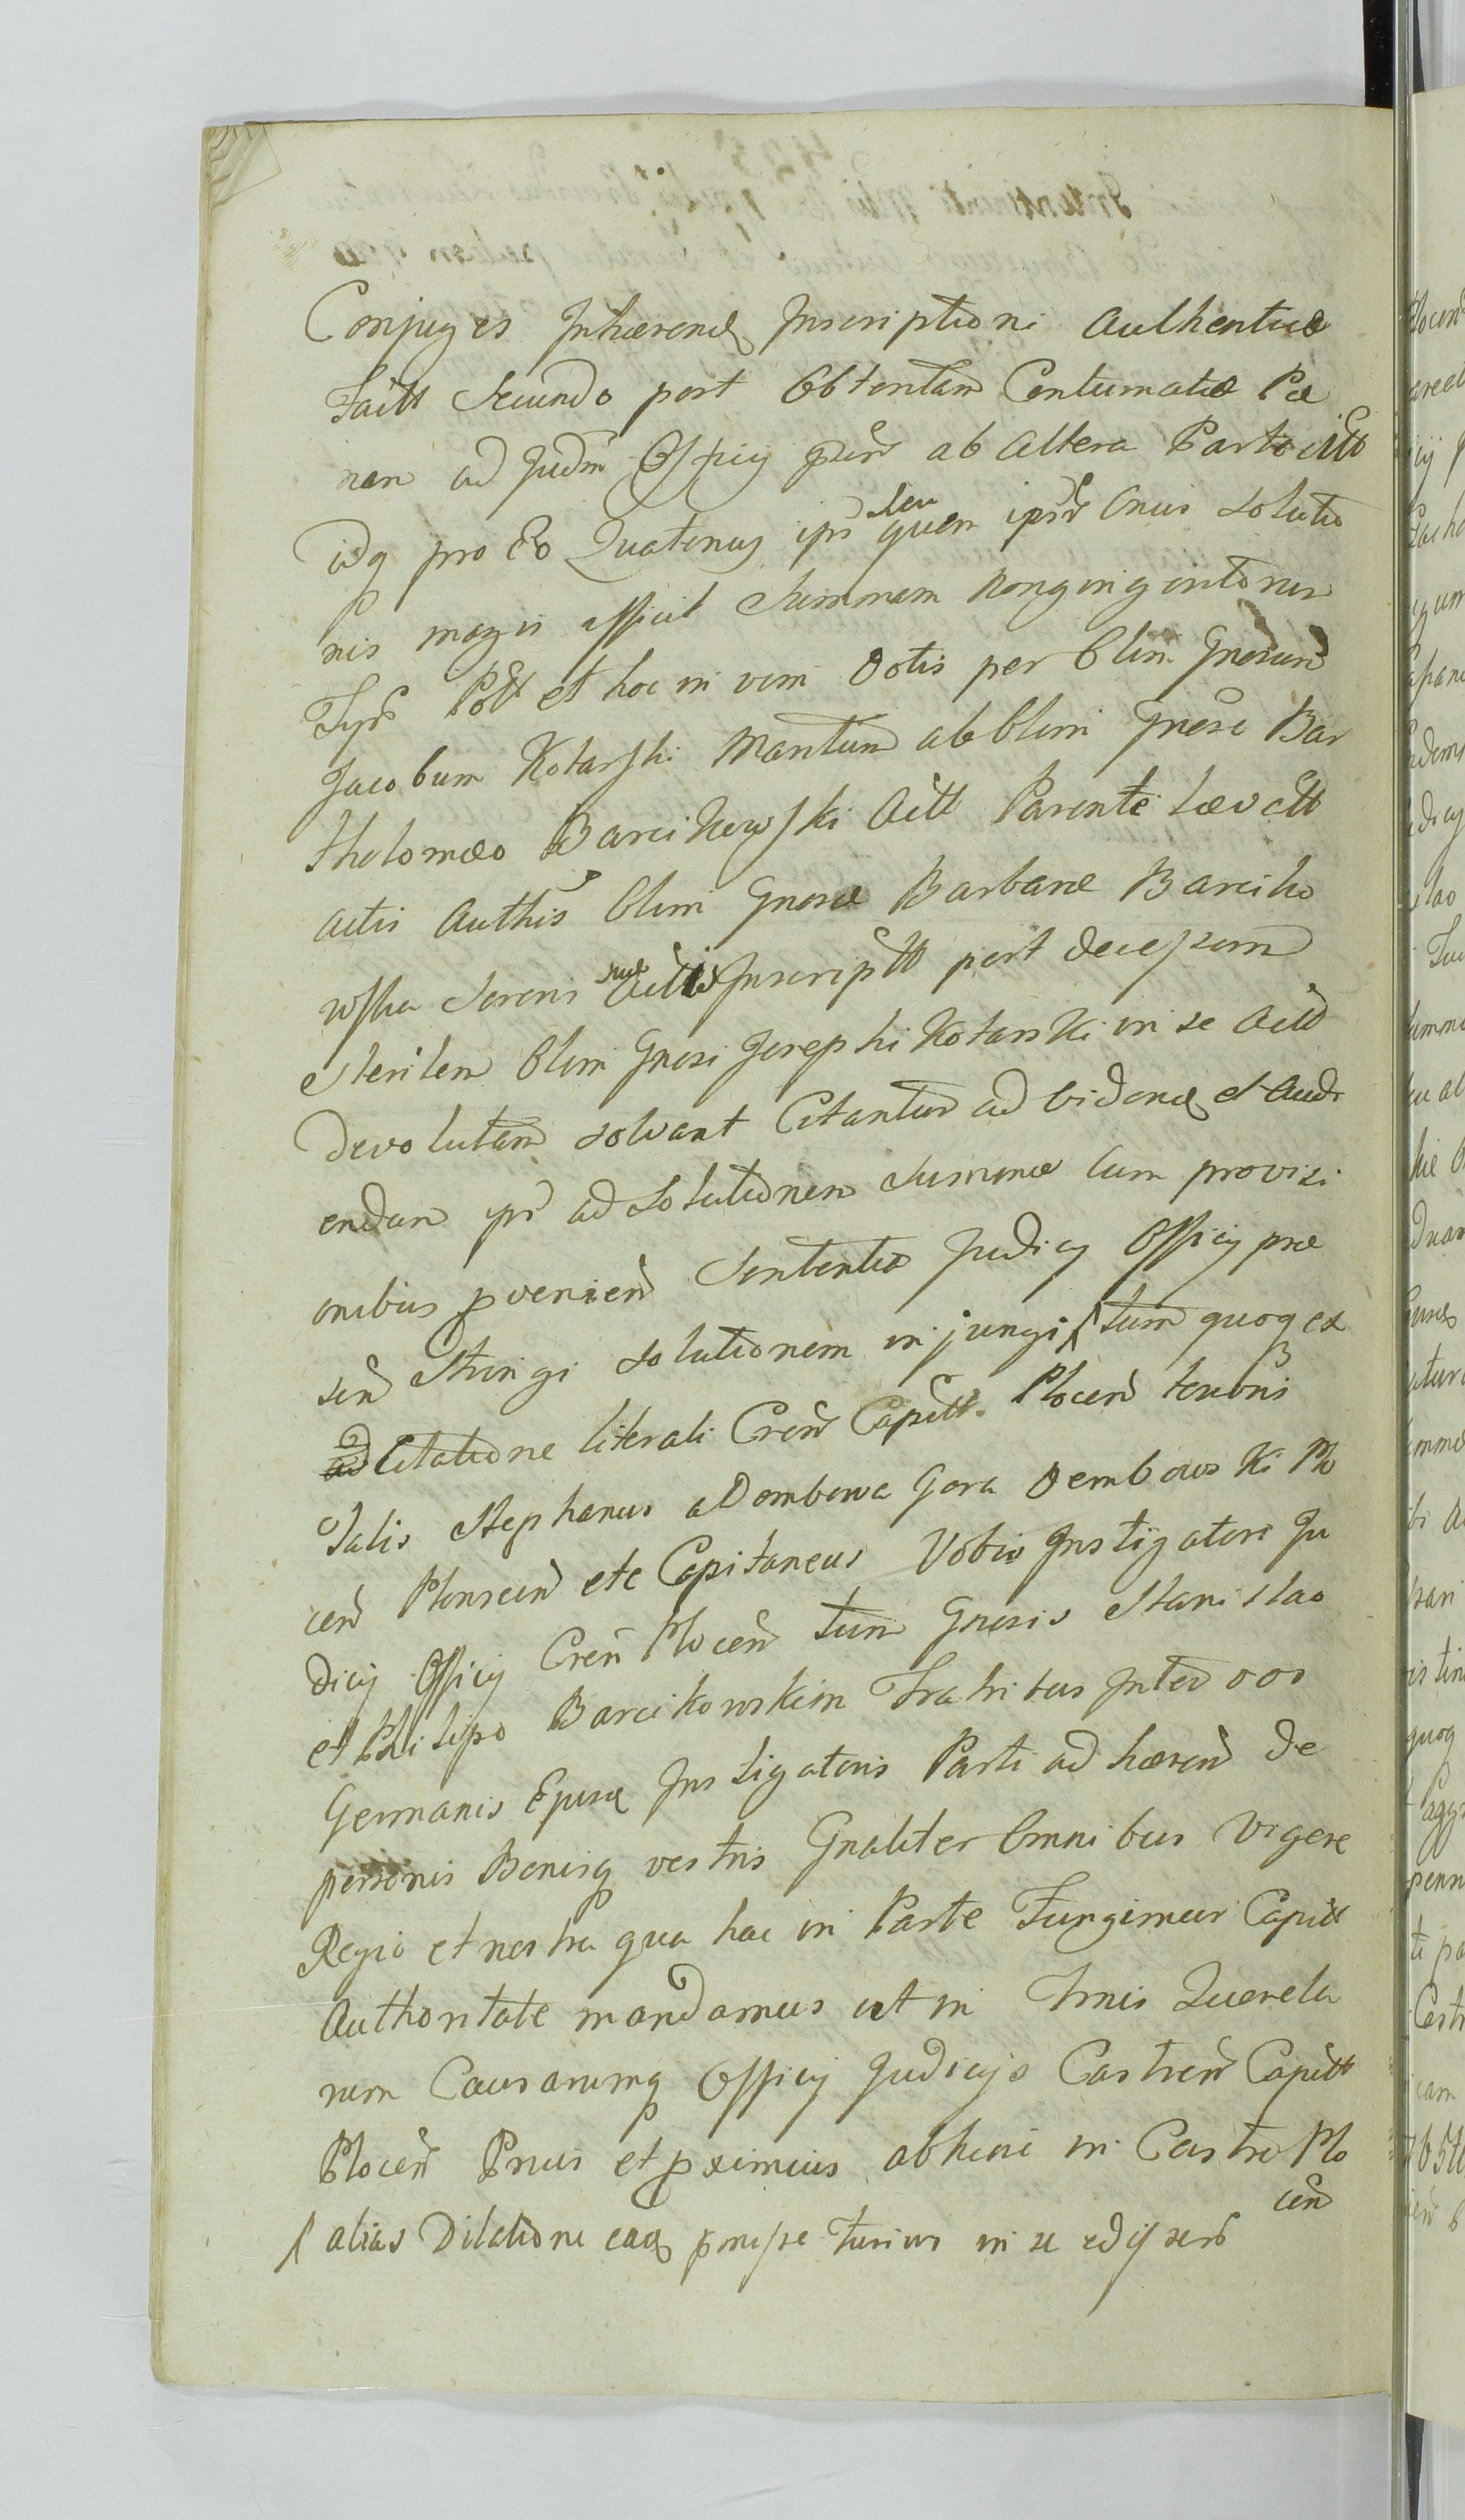 Conjuges Inhærend Inscriptioni Authenticæ
Facta Secundo post Obtentam Contumaciæ Pæ
nam ad Judm Officij præn ab Altera Parte Citto
idq pro Eo Quatenus ipi seu quem ipsor Onus Solutio
nis magis afficit Summam Nongingentorum
Fypr Polt et hoc in vim Dotis per Olim Gnosum
Jacobum Kotarski Mantum ab Olim Gnoso Bar
tholomæo Barcikowski Actt Parente Lævatt
actis Authis Olim Gnosæ Barbaræ Barciko
wska Sororis suæ Actt Inscriptt post decessum
Sterilem Olim Gnosi Josephi Kotarski in se Actt
Devolutam solvant Citantur ad Videnq et Audi
endum ipi ad Solutionem Summæ Cum provisi
onibus pvenien Sententia Judicij Officij præ
sen Stringi solutionem injungi /tum quoq ex
Citatione literali Cren Capitt. Plocen tenoris
Talis Stephanus a Dombowa Gora Dembowski Plo
cen Plonscen etc Capitaneus Vobis Instigatori Ju
dicij Officij Cren Plocen tum Gnosis Stanislao
et Philipo Barcikowskim Fratribus Inter vos
Germanis Ejusq Instigatoris Parti adhæren de
personis Bonisq vestris Gnaliter Omnibus Vigore
Regio et nostra qua hac in Parte Fungimur Capitt
Authoritate mandamus ut in Tnis Querela
rum Causarumq Officij Judicijs Castren Capitt
Plocen Prius et pximius abhinc in Castro Plo
cen
/ alias Dilatione eaq pmisse Turius in se edysen